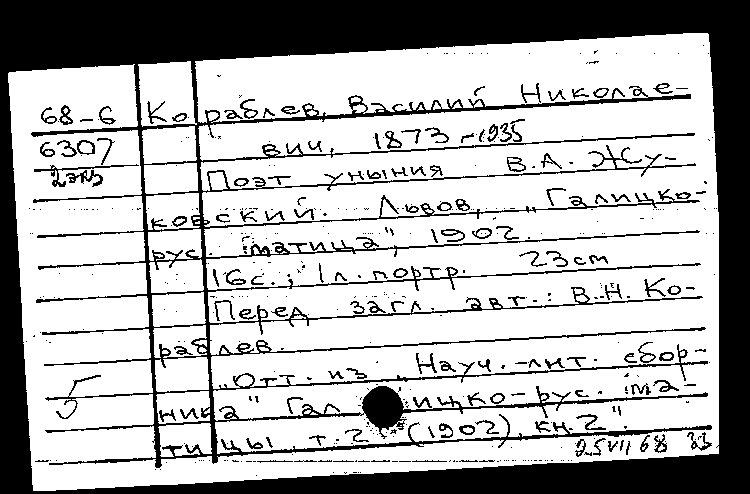 68-6 Кораблев, Василий Николае-
6307 вич, 1873-1935
2 экз Поэт уныния В.А. Жу-
ковский. Львов, „Галицко-
рус. матица", 1902.
16с.; 1л. портр. 23cm
Перед загл. авт.: В.Н. Ко-
раблев.
„Отт. из „Науч.-лит. сбор-
5 ника" Галицко-рус. ма-
тицы т.2 (1902), кн.2".
25 VII 68